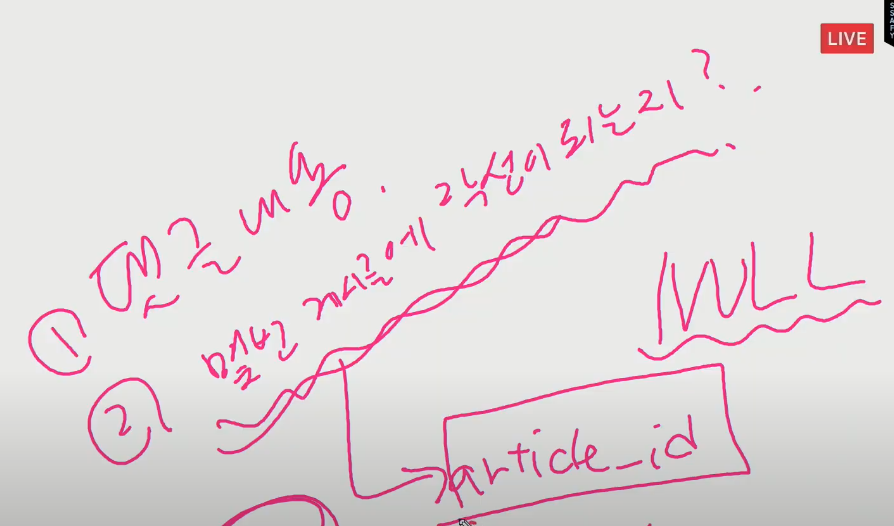 LIVE
SSAFY
① 댓글 내용.
② 몇번 게시글에 작성이 되는지?..
NULL
article_id